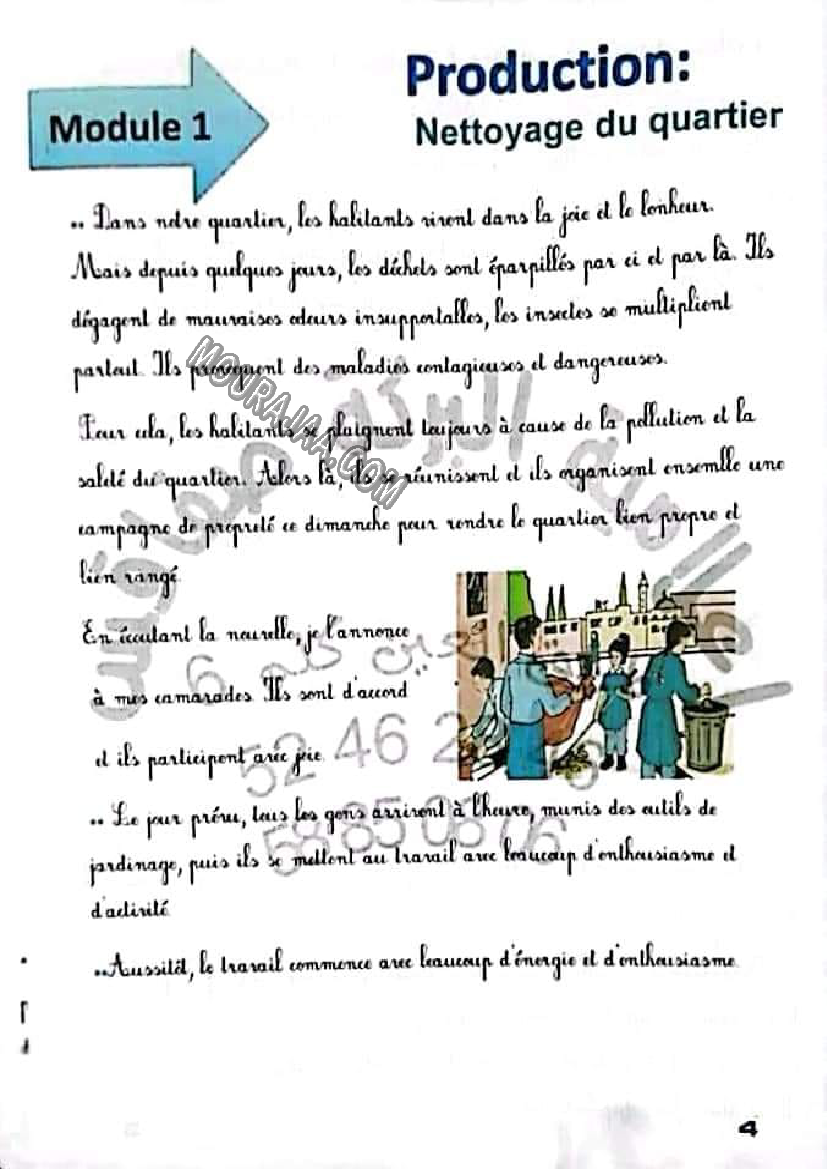 Production:
Module 1
Nettoyage du quartier
.. Dans notre quartier, les habitants vivent dans la joie et le bonheur.
Mais depuis quelques jours, les déchets sont éparpillés par ci et par là. Ils
dégagent de mauvaises odeurs insupportables, les insectes se multiplient
partout. Ils provoquent des maladies contagieuses et dangereuses.
MOURAJAA.COM
Pour cela, les habitants se plaignent toujours à cause de la pollution et la
saleté du quartier. Alors là, ils se réunissent et ils organisent ensemble une
campagne de propreté ce dimanche pour rendre le quartier bien propre et
bien rangé.
En écoutant la nouvelle, je l'annonce
à mes camarades. Ils sont d'accord
et ils participent avec joie.
.. Le jour prévu, tous les gens arrivent à l'heure, munis des outils de
jardinage, puis ils se mettent au travail avec beaucoup d'enthousiasme et
d'activité.
..Aussitôt, le travail commence avec beaucoup d'énergie et d'enthousiasme.
4